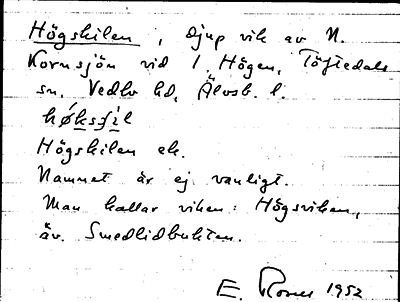 Högskilen, djup vik av N.
Kornsjön vid 1 Högen, Töftedals
sn, Vedbo hd, Älvsb. l.
høksfil
Högskilen ek.
Namnet är ej vanligt.
Man kallar viken: Högsviken,
äv. Smedlidbukten.
E. 1952